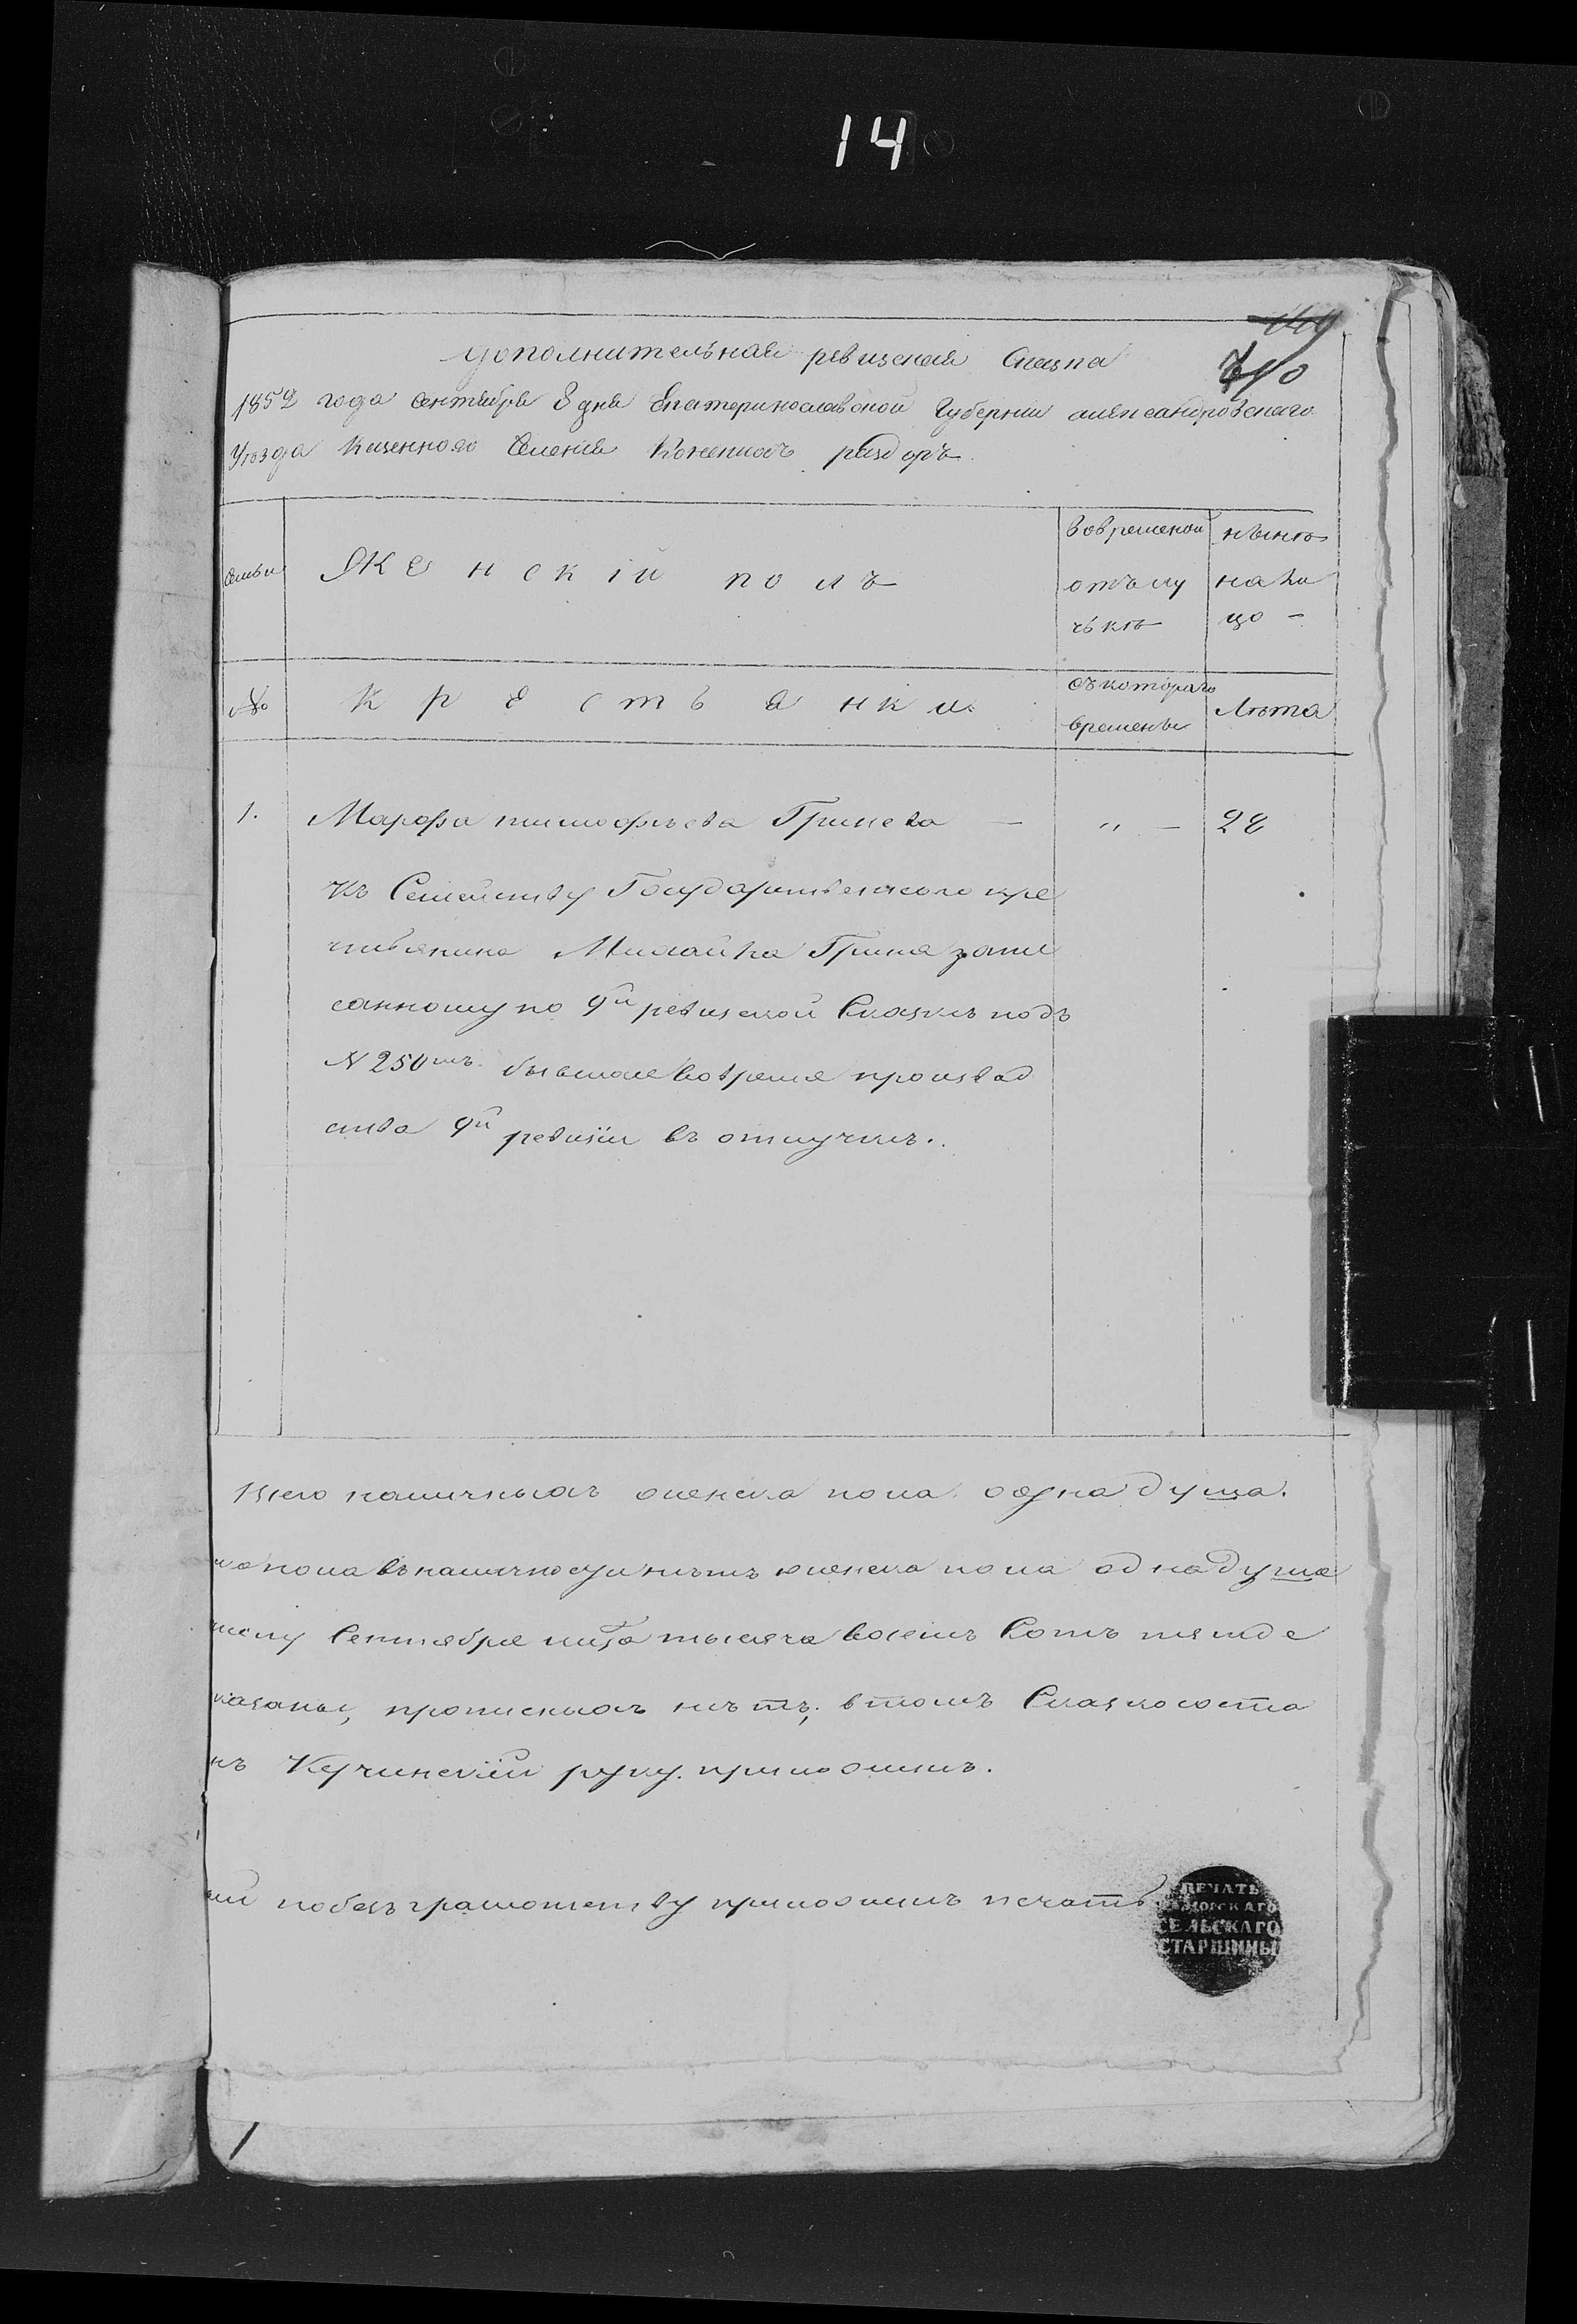 14
149
710
Дополнительная ревизская Сказка
1852 года Сентября 8 дня Екатеринославской Губернии александровскаго
Уѣзда Казенного Селенія Коменныхъ раздоръ
Семьи
Женскій полъ
Вовременой
отълу
чькѣ
нѣинѣ
нали
цо -
№
Крестьянки.
съкотораго
времены
Лѣта
1.
Марфа тимофѣева Гринева — „ — 28
Къ Семейству Государственного кре
стьянина Михайла Гриня запи
санному по 9й ревизской Сказкѣ подъ
N 250мъ бывшая вовремя производ
ства 9й ревизіи въ отлучкѣ.
Всего наличныхъ женска пола одна душа.
пола въналичности нѣтъ женска пола одна душа
Сентября тысяча восемь Сотъ пятде
казаны, прописныхъ нѣтъ, втомъ Сказкососта
нъ Кучинскій руку приложилъ.
побезграмотству приложилъ печать
ПЕЧАТЬ
СЕЛЬСКАГО
СТАРШИНЫ